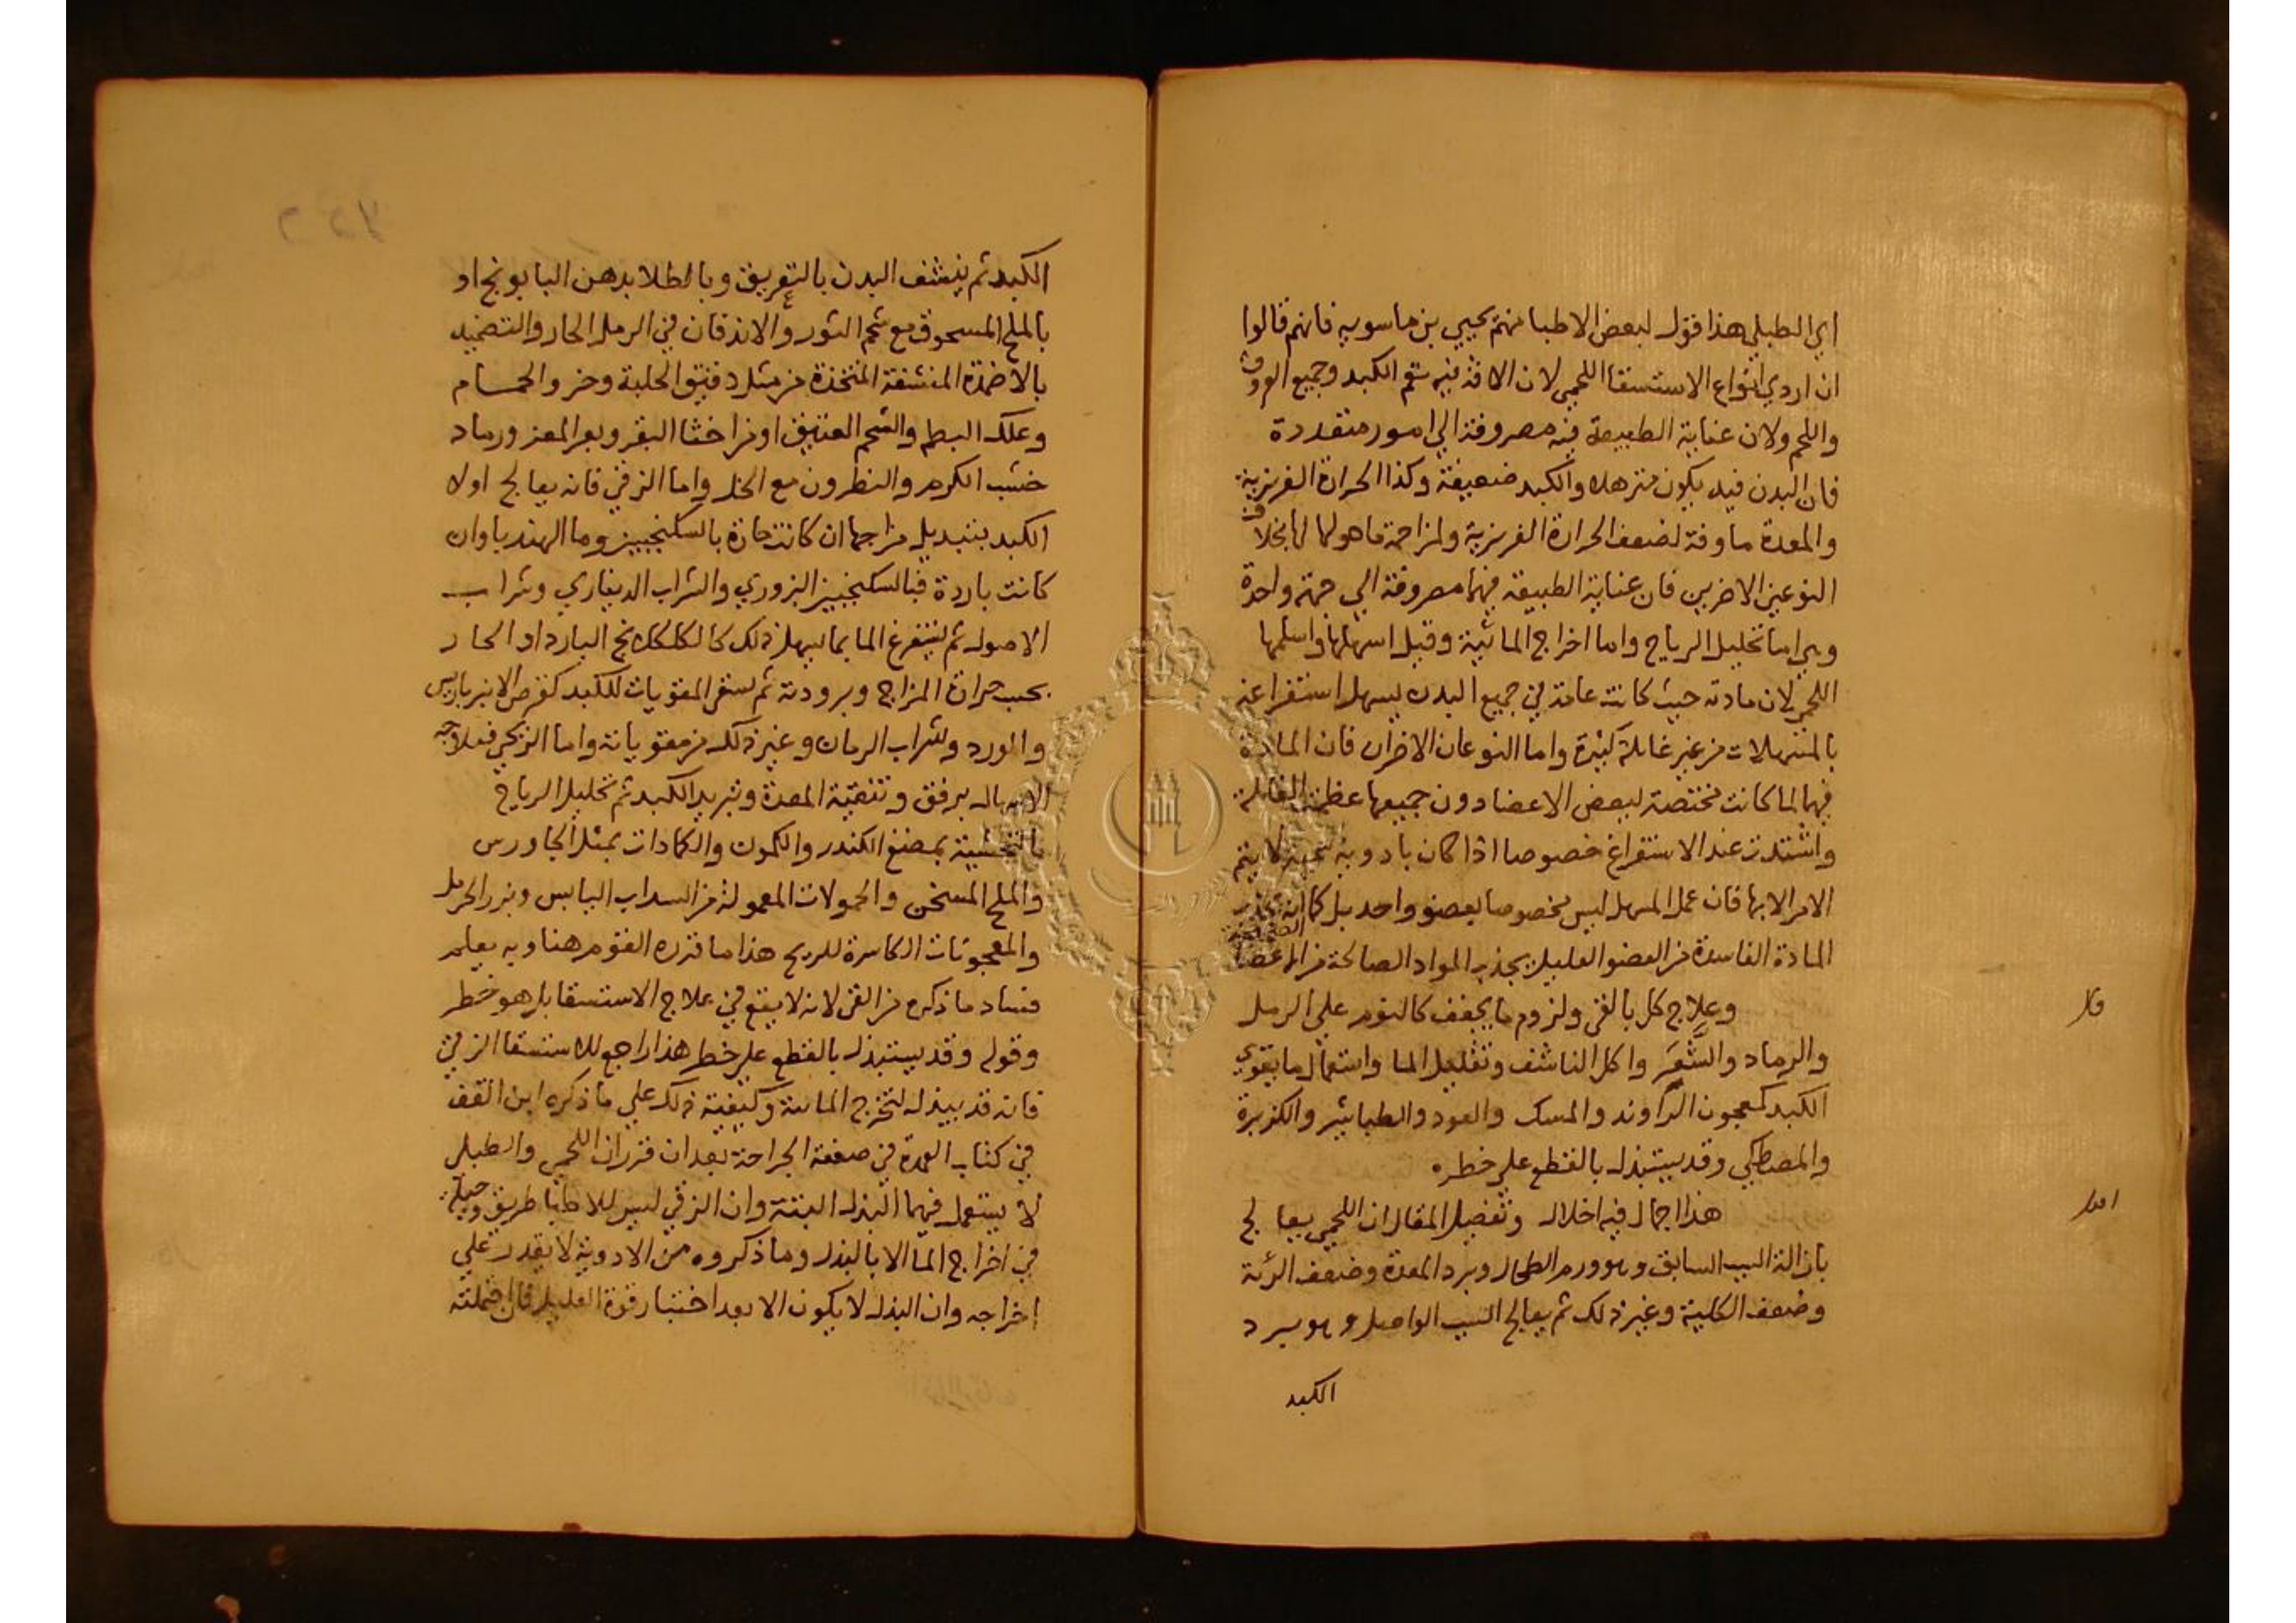 اي الطبلي هذا قول لبعض الاطبا منهم يحيي بن ماسويه فانهم قالوا
ان اردي انواع الاستسقا اللحمي لان الافة فيه تعم الكبد وجميع العروق
واللحم ولان عناية الطبيعة فيه مصروفة الي امور متعددة
فان البدن فيه يكون مترهلا والكبد ضعيفة وكذا الحرارة الغريزية
والمعدة ماوفة لضعف الحرارة الغريزية ولمزاحمة ما هو لها بخلاف
النوعين الاخرين فان عناية الطبيعة فيهما مصروفة الي جهة واحدة
وهي اما تحليل الرياح واما اخراج المائية وقيل اسهلها واسلمها
اللحمي لان مادته حيث كانت عامة في جميع البدن يسهل استفراغه
بالمسهلات من غير غايلة كبيرة واما النوعان الاخران فان المادة
فيهما لما كانت مختصة ببعض الاعضا دون جميعها عظمت الغايلة
واشتدت عند الاستفراغ خصوصا اذا كان بادوية لا يتم
الامر الا بها فان عمل المسهل ليس مخصوصا بعضو واحد بل كما انه يجذب
المادة الفاسدة من العضو العليل يجذب المواد الصالحة من الاعضا الصحيحة
قال
وعلاج كل بالقي ولزوم ما يجفف كالنوم علي الرمل
والرماد والشعر واكل الناشف وتقليل الما واستعمال ما يقوي
الكبد كمعجون الراوند والمسك والعود والطباشير والكزبرة
والمصطكي وقد يستبذل بالقطع علي خطره
اقول
هذا اجمال فيه اخلال وتفصيل المقال ان اللحمي يعالج
بازالة السبب السابق وهو ورم الطحال وبرد المعدة وضعف الرئة
وضعف الكلية وغير ذلك ثم يعالج السبب الواصل وهو برد
الكبد
الكبد ثم ينشف البدن بالتعريق وبالطلا بدهن البابونج او
بالملح المسحوق مع شحم الثور والاندفان في الرمل الحار والتضميد
بالاضمدة المنشفة المتخذة من مثل دقيق الحلبة وخر والحمام
وعلك البطم والشحم العتيق او من اخثا البقر وبعر المعز ورماد
خشب الكرم والنطرون مع الخل واما الزقي فانه يعالج اولا
الكبد بتبديل مزاجها ان كانت حارة بالسكنجبين وما الهندبا وان
كانت باردة فبالسكنجبين البزوري والشراب الديناري وشراب
الاصول ثم يستفرغ الما بما يسهل ذلك كالكلكلانج البارد او الحار
بحسب حرارة المزاج وبرودته ثم يسقي المقويات للكبد كقرص الانبرباريس
والورد وشراب الرمان وغير ذلك من مقوياته واما الريحي فعلاجه
الاسهال برفق وتنقية المعدة وتبريد الكبد ثم تحليل الرياح
بالتجشية بمضغ الكندر والكمون والكمادات بمثل الجاورس
والملح المسخن والحمولات المعمولة من السداب اليابس وبزر الحرمل
والمعجونات الكاسرة للريح هذا ما قرره القوم هنا وبه يعلم
فساد ما ذكره من القي لانه لا يقع في علاج الاستسقا بل هو خطر
وقوله وقد يستبذل بالقطع علي خطر هذا راجع للاستسقا الزقي
فانه قد يبذل لتخرج المائية وكيفية ذلك علي ما ذكره ابن القف
في كتاب العمدة في صنعة الجراحة بعد ان قرر ان اللحمي والطبلي
لا يستعمل فيهما البذل البتة وان الزقي ليس للاطبا طريق وحيلة
في اخراج الما الا بالبذل وما ذكروه من الادوية لا يقدر علي
اخراجه وان البذل لا يكون الا بعد اختبار قوة العليل فان احتملته